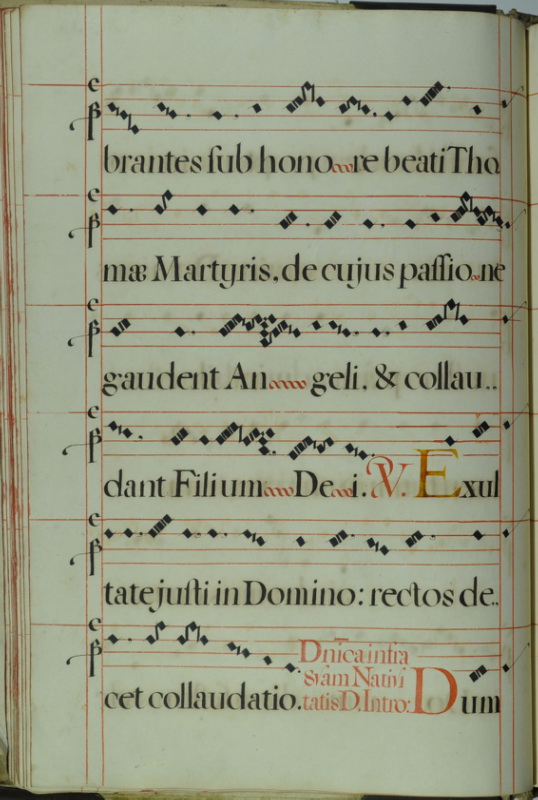 brantes ſub honore beati Tho
mæ Martyris, de cujus paſſione
gaudent Angeli, & collau..
dant Filium Dei. ℣. Exul
tate juſti in Domino: rectos de..
cet collaudatio. Dnīca infra
Nativi
tatis D. Intro: Dum